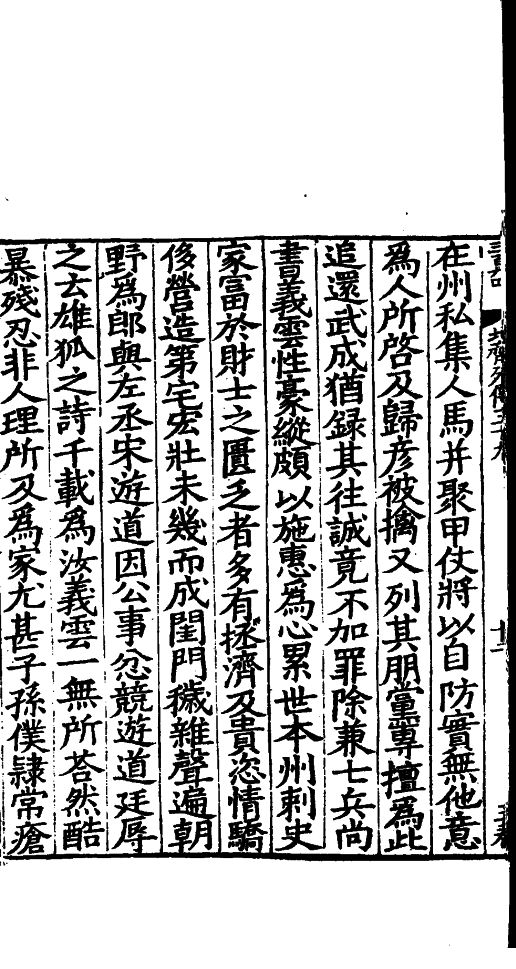 在州私集人馬并聚甲仗將以自防實無他意
為人所啓及歸彦被擒又列其朋黨專擅為此
追還武成猶録其往誠竟不加罪除兼七兵尚
書義雲性豪縱頗以施惠為心累世本州刺史
家富於財士之匱乏者多有拯濟及貴恣情驕
侈營造第宅宏壯未幾而成閨門穢雜聲遍朝
野為郎與左丞宋遊道因公事忿競遊道廷辱
之云雄狐之詩千載為汝義雲一無所荅然酷
暴殘忍非人理所及為家尤甚子孫僕隸常瘡